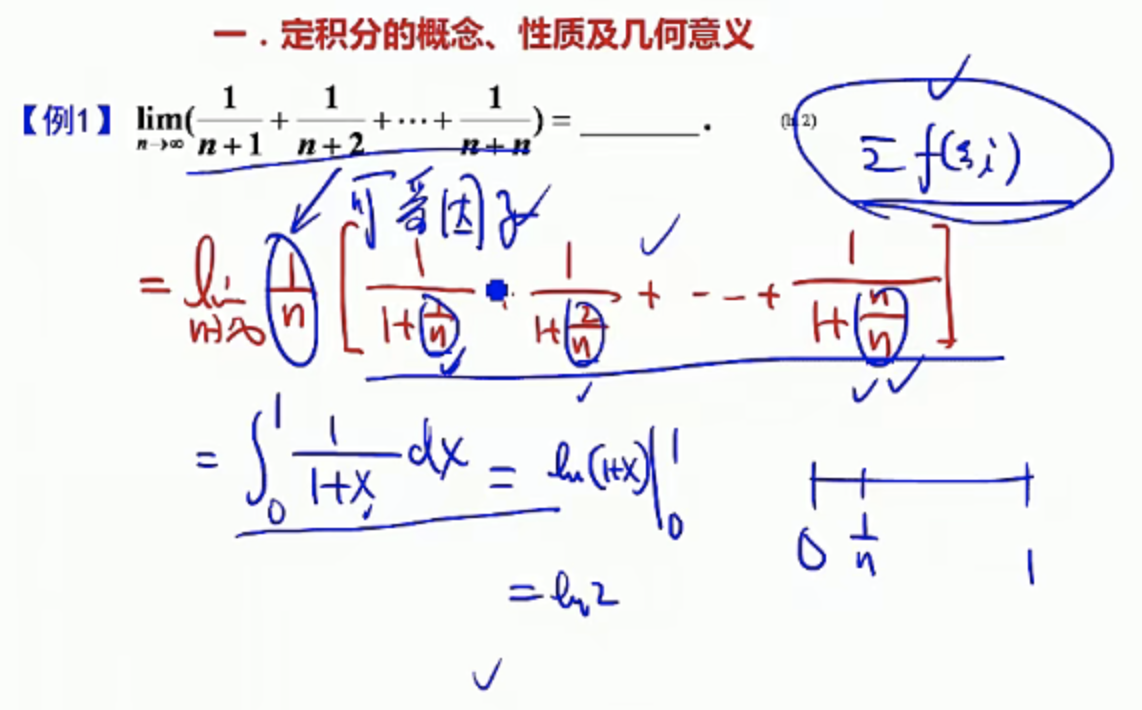 一．定积分的概念、性质及几何意义
【例1】 lim(n→∞) (1/(n+1) + 1/(n+2) + ⋯ + 1/(n+n)) = ______. (ln 2)
Σ f(ξi)
可爱因子
= lim(n→∞) 1/n [1/(1+1/n) + 1/(1+2/n) + --- + 1/(1+n/n)]
= ∫₀¹ 1/(1+x) dx = ln(1+x)|₀¹
0 1/n 1
= ln2